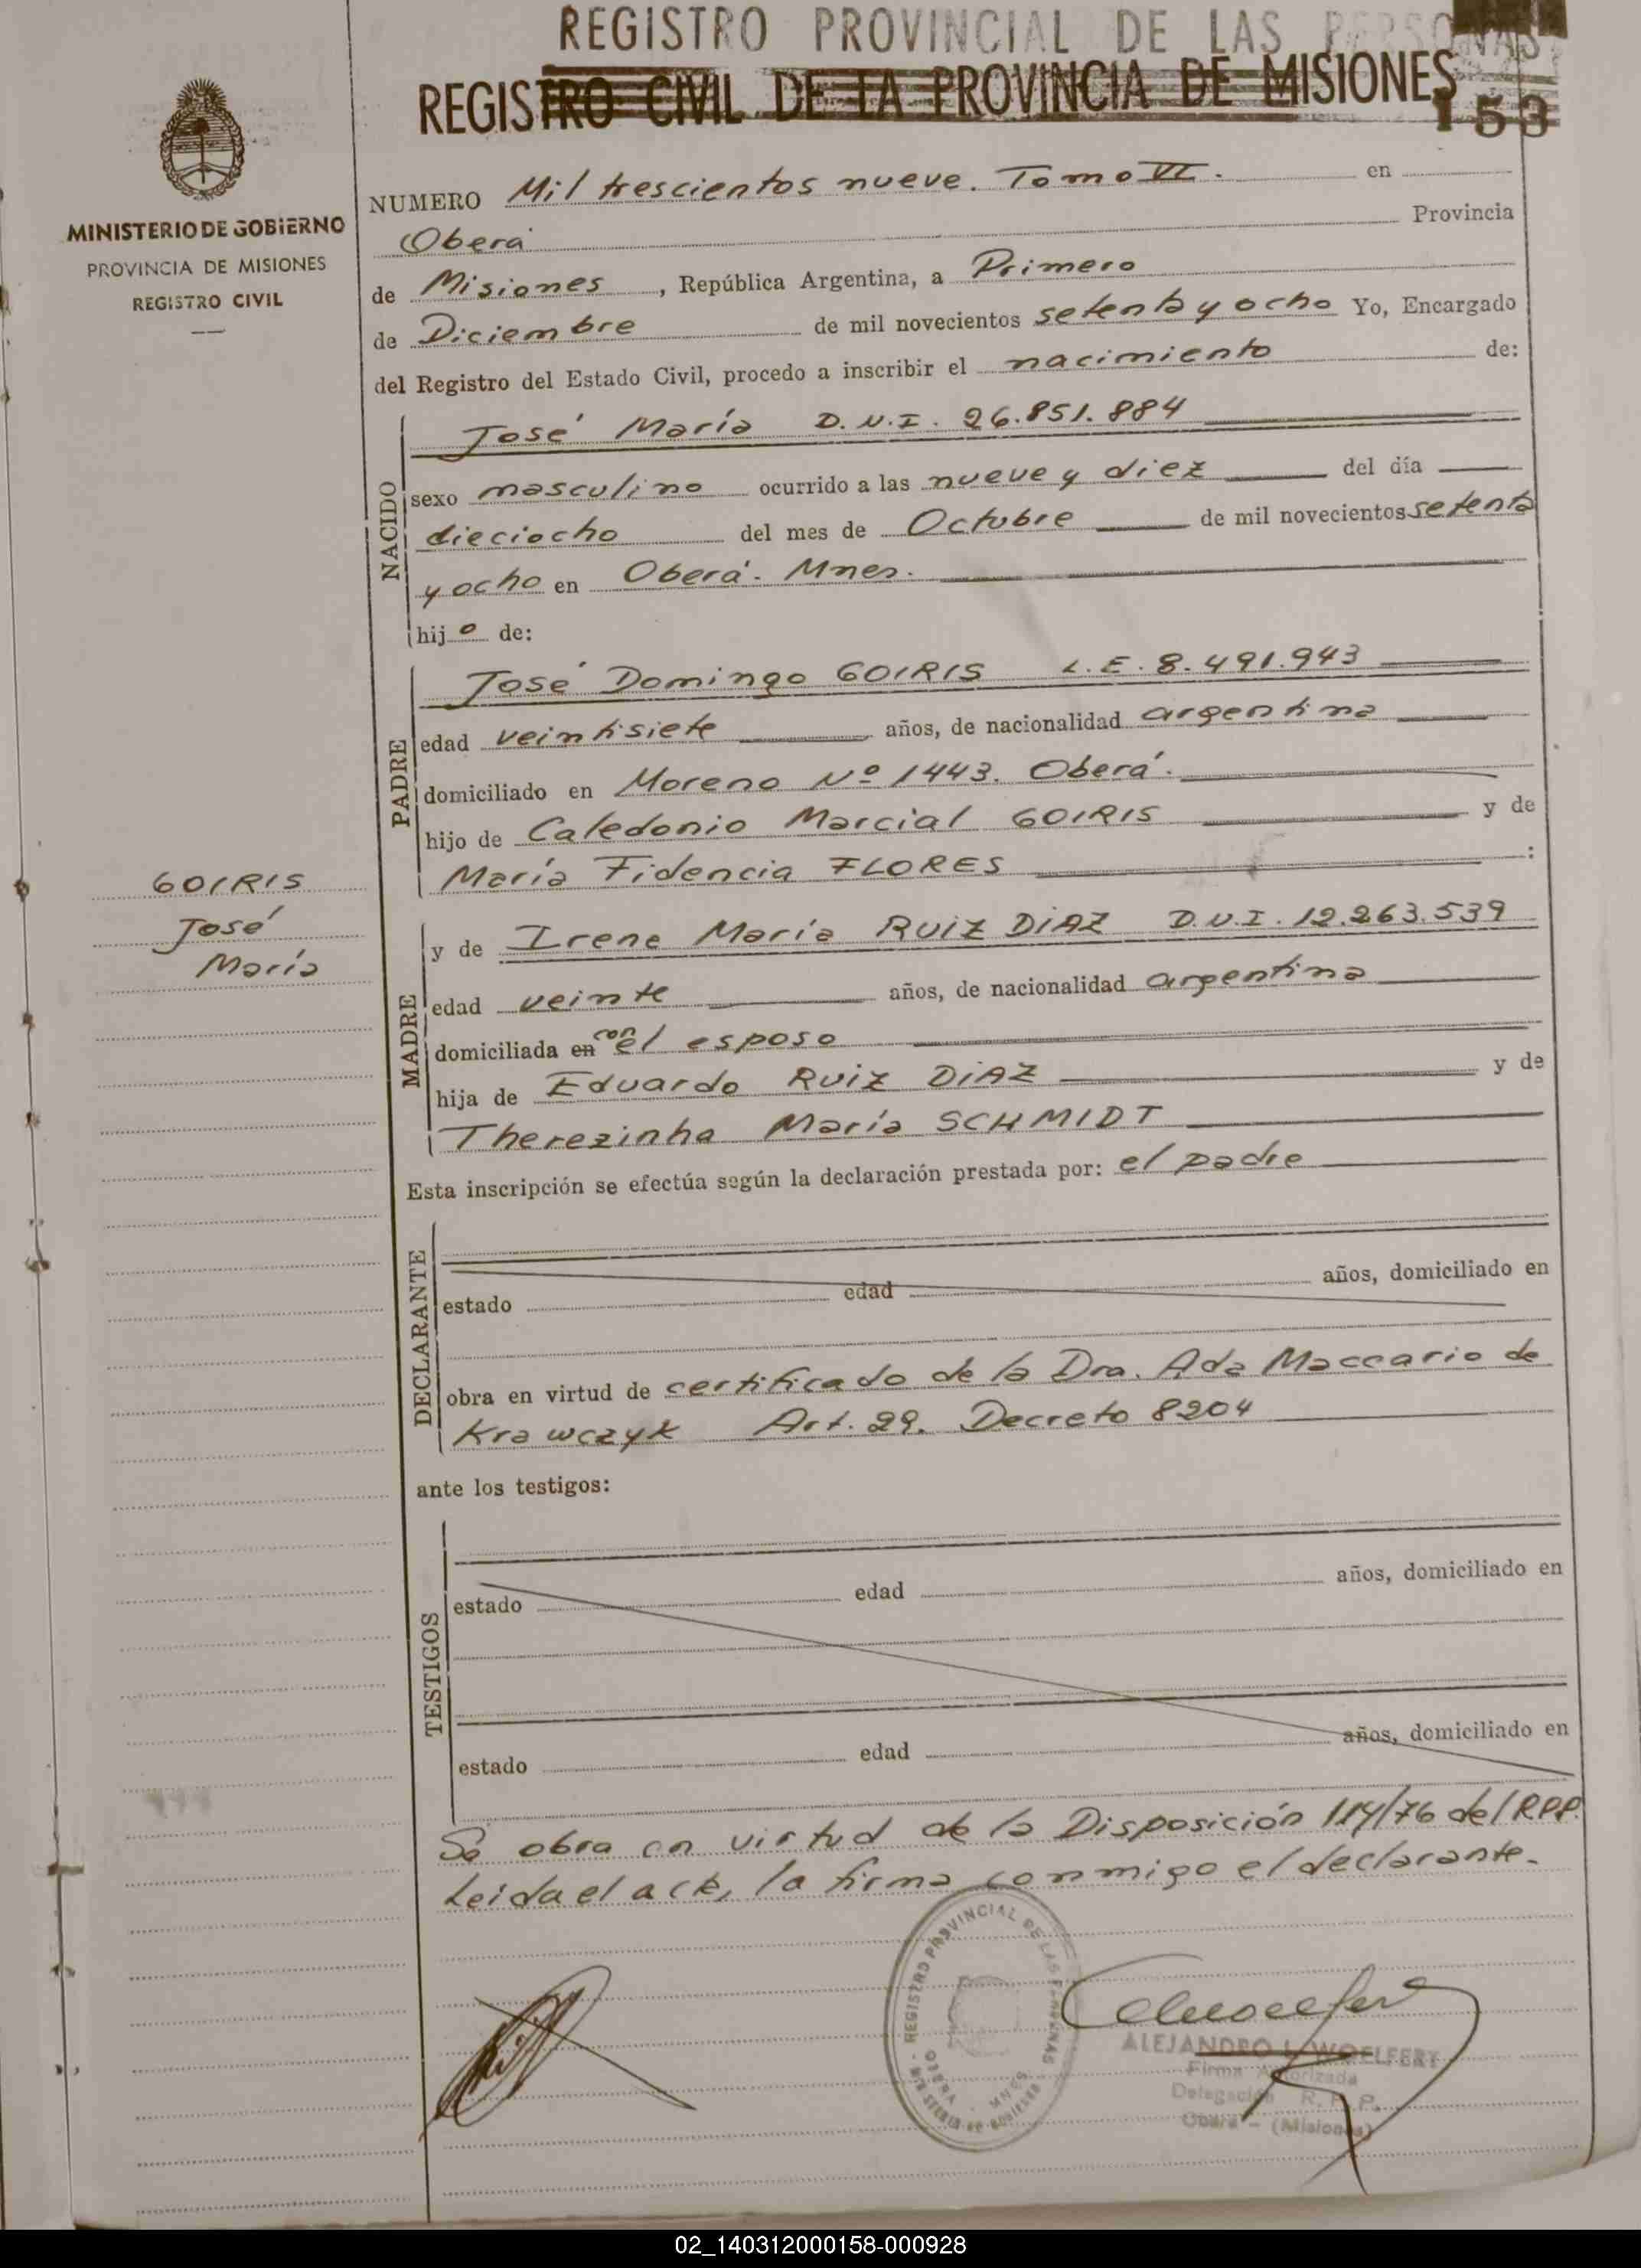 REGISTRO PROVINCIAL DE LAS PERSONAS
REGISTRO CIVIL DE LA PROVINCIA DE MISIONES
153
MINISTERIO DE GOBIERNO
PROVINCIA DE MISIONES
REGISTRO CIVIL
NUMERO Mil trescientos nueve. Tomo VI. en
Oberá Provincia
de Misiones, República Argentina, a Primero
de Diciembre de mil novecientos setenta y ocho Yo, Encargado
del Registro del Estado Civil, procedo a inscribir el nacimiento de:
NACIDO
José María D.N.I. 26.851.884
sexo masculino ocurrido a las nueve y diez del día
dieciocho del mes de Octubre de mil novecientos setenta
y ocho en Oberá. Mnes.
hijo de:
PADRE
José Domingo GOIRIS L.E. 8.491.943
edad veintisiete años, de nacionalidad argentina
domiciliado en Moreno Nº 1443. Oberá.
hijo de Caledonio Marcial GOIRIS y de
María Fidencia FLORES :
GOIRIS
José
María
MADRE
y de Irene María RUIZ DIAZ D.N.I. 12.263.539
edad veinte años, de nacionalidad argentina
domiciliada en con el esposo
hija de Eduardo RUIZ DIAZ y de
Therezinha María SCHMIDT
Esta inscripción se efectúa según la declaración prestada por: el padre
DECLARANTE
estado edad años, domiciliado en
obra en virtud de certificado de la Dra. Ada Maccario de
Krawczyk Art. 29. Decreto 8204
ante los testigos:
TESTIGOS
estado edad años, domiciliado en
estado edad años, domiciliado en
Se obra en virtud de la Disposición 114/76 del R.P.P.
Leida el acta, la firma conmigo el declarante.
REGISTRO PROVINCIAL DE LAS PERSONAS
OBERA - MNES
MINISTERIO DE GOBIERNO
ALEJANDRO L. WOELFERT
Firma Autorizada
Delegación R.P.P.
Oberá - (Misiones)
02_140312000158-000928